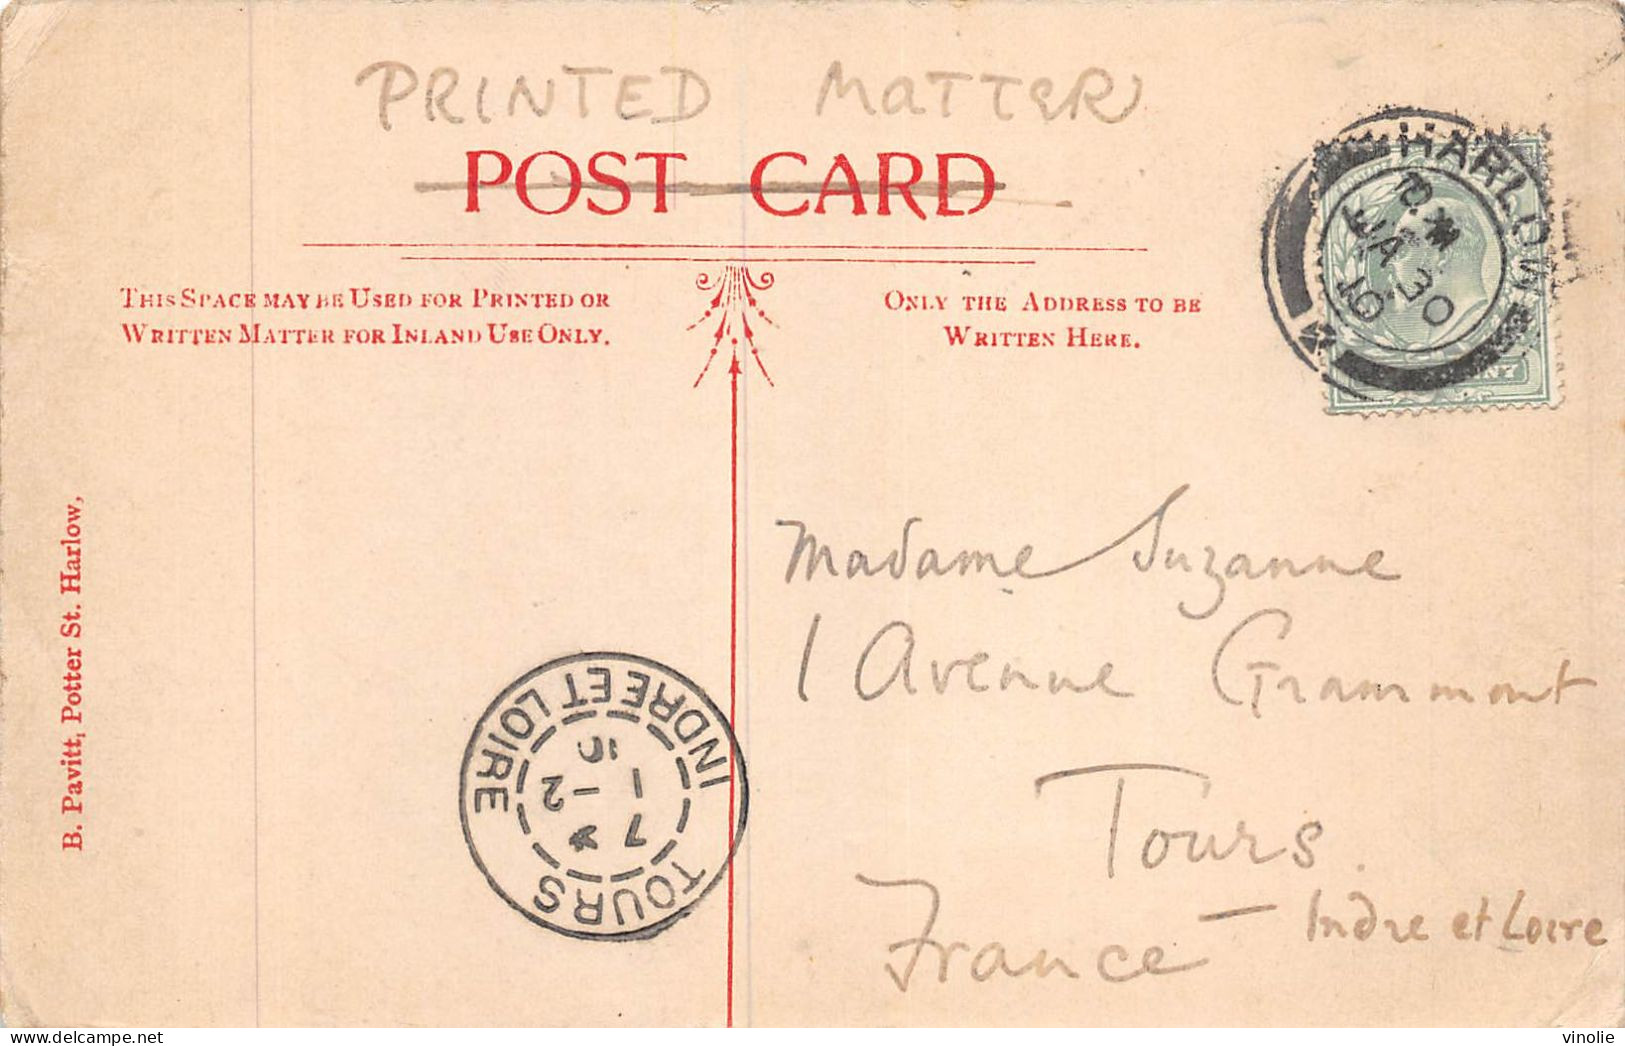 PRINTED MATTER
POST CARD
THIS SPACE MAY BE USED FOR PRINTED OR
WRITTEN MATTER FOR INLAND USE ONLY.
ONLY THE ADDRESS TO BE
WRITTEN HERE.
HARLOW
JA 30
10
B. Pavitt, Potter St. Harlow,
Madame Suzanne
1 Avenue Grammont
Tours
France - Indre et Loire
TOURS
7 *
1 - 2
10
INDRE ET LOIRE
vinolie